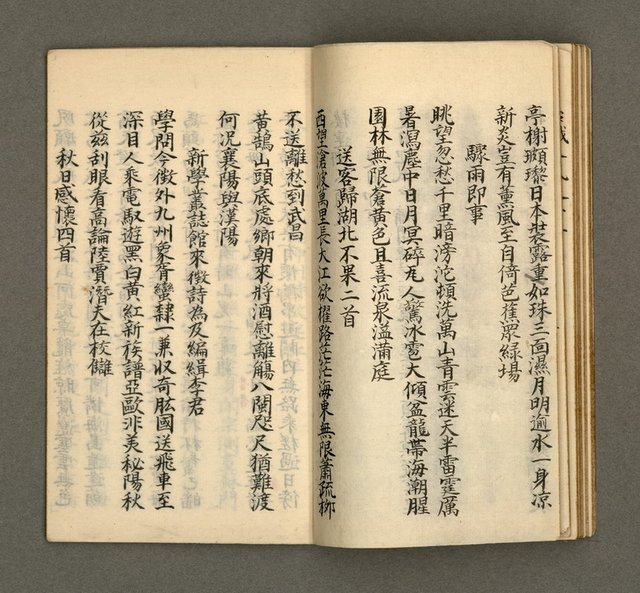 亭榭頗黎日本裝露重如珠三面濕月明逾水一身凉
新炎豈有薰風至自倚芭蕉眾綠場
驟雨即事
眺望忽愁千里暗滂沱頓洗萬山青雲迷天半雷霆厲
暑瀉塵中日月冥碎瓦人驚冰雹大傾盆龍帶海潮腥
園林無限倉黃色且喜流泉溢滿庭
送客歸湖北不果二首
西望滄波萬里長大江欲櫂路茫茫海東無限蕭疏柳
不送離愁到武昌
黃鵠山頭底處鄉朝來將酒慰離觴八閩咫尺猶難渡
何況襄陽與漢陽
新學叢誌館來徵詩為及編緝李君
學問今徵外九州象胥蠻隸一兼收奇肱國送飛車至
深目人乘電馭遊黑白黃紅新族譜亞歐非美秘陽秋
從茲刮眼看高論陸賈潛夫在校讎
秋日感懷四首